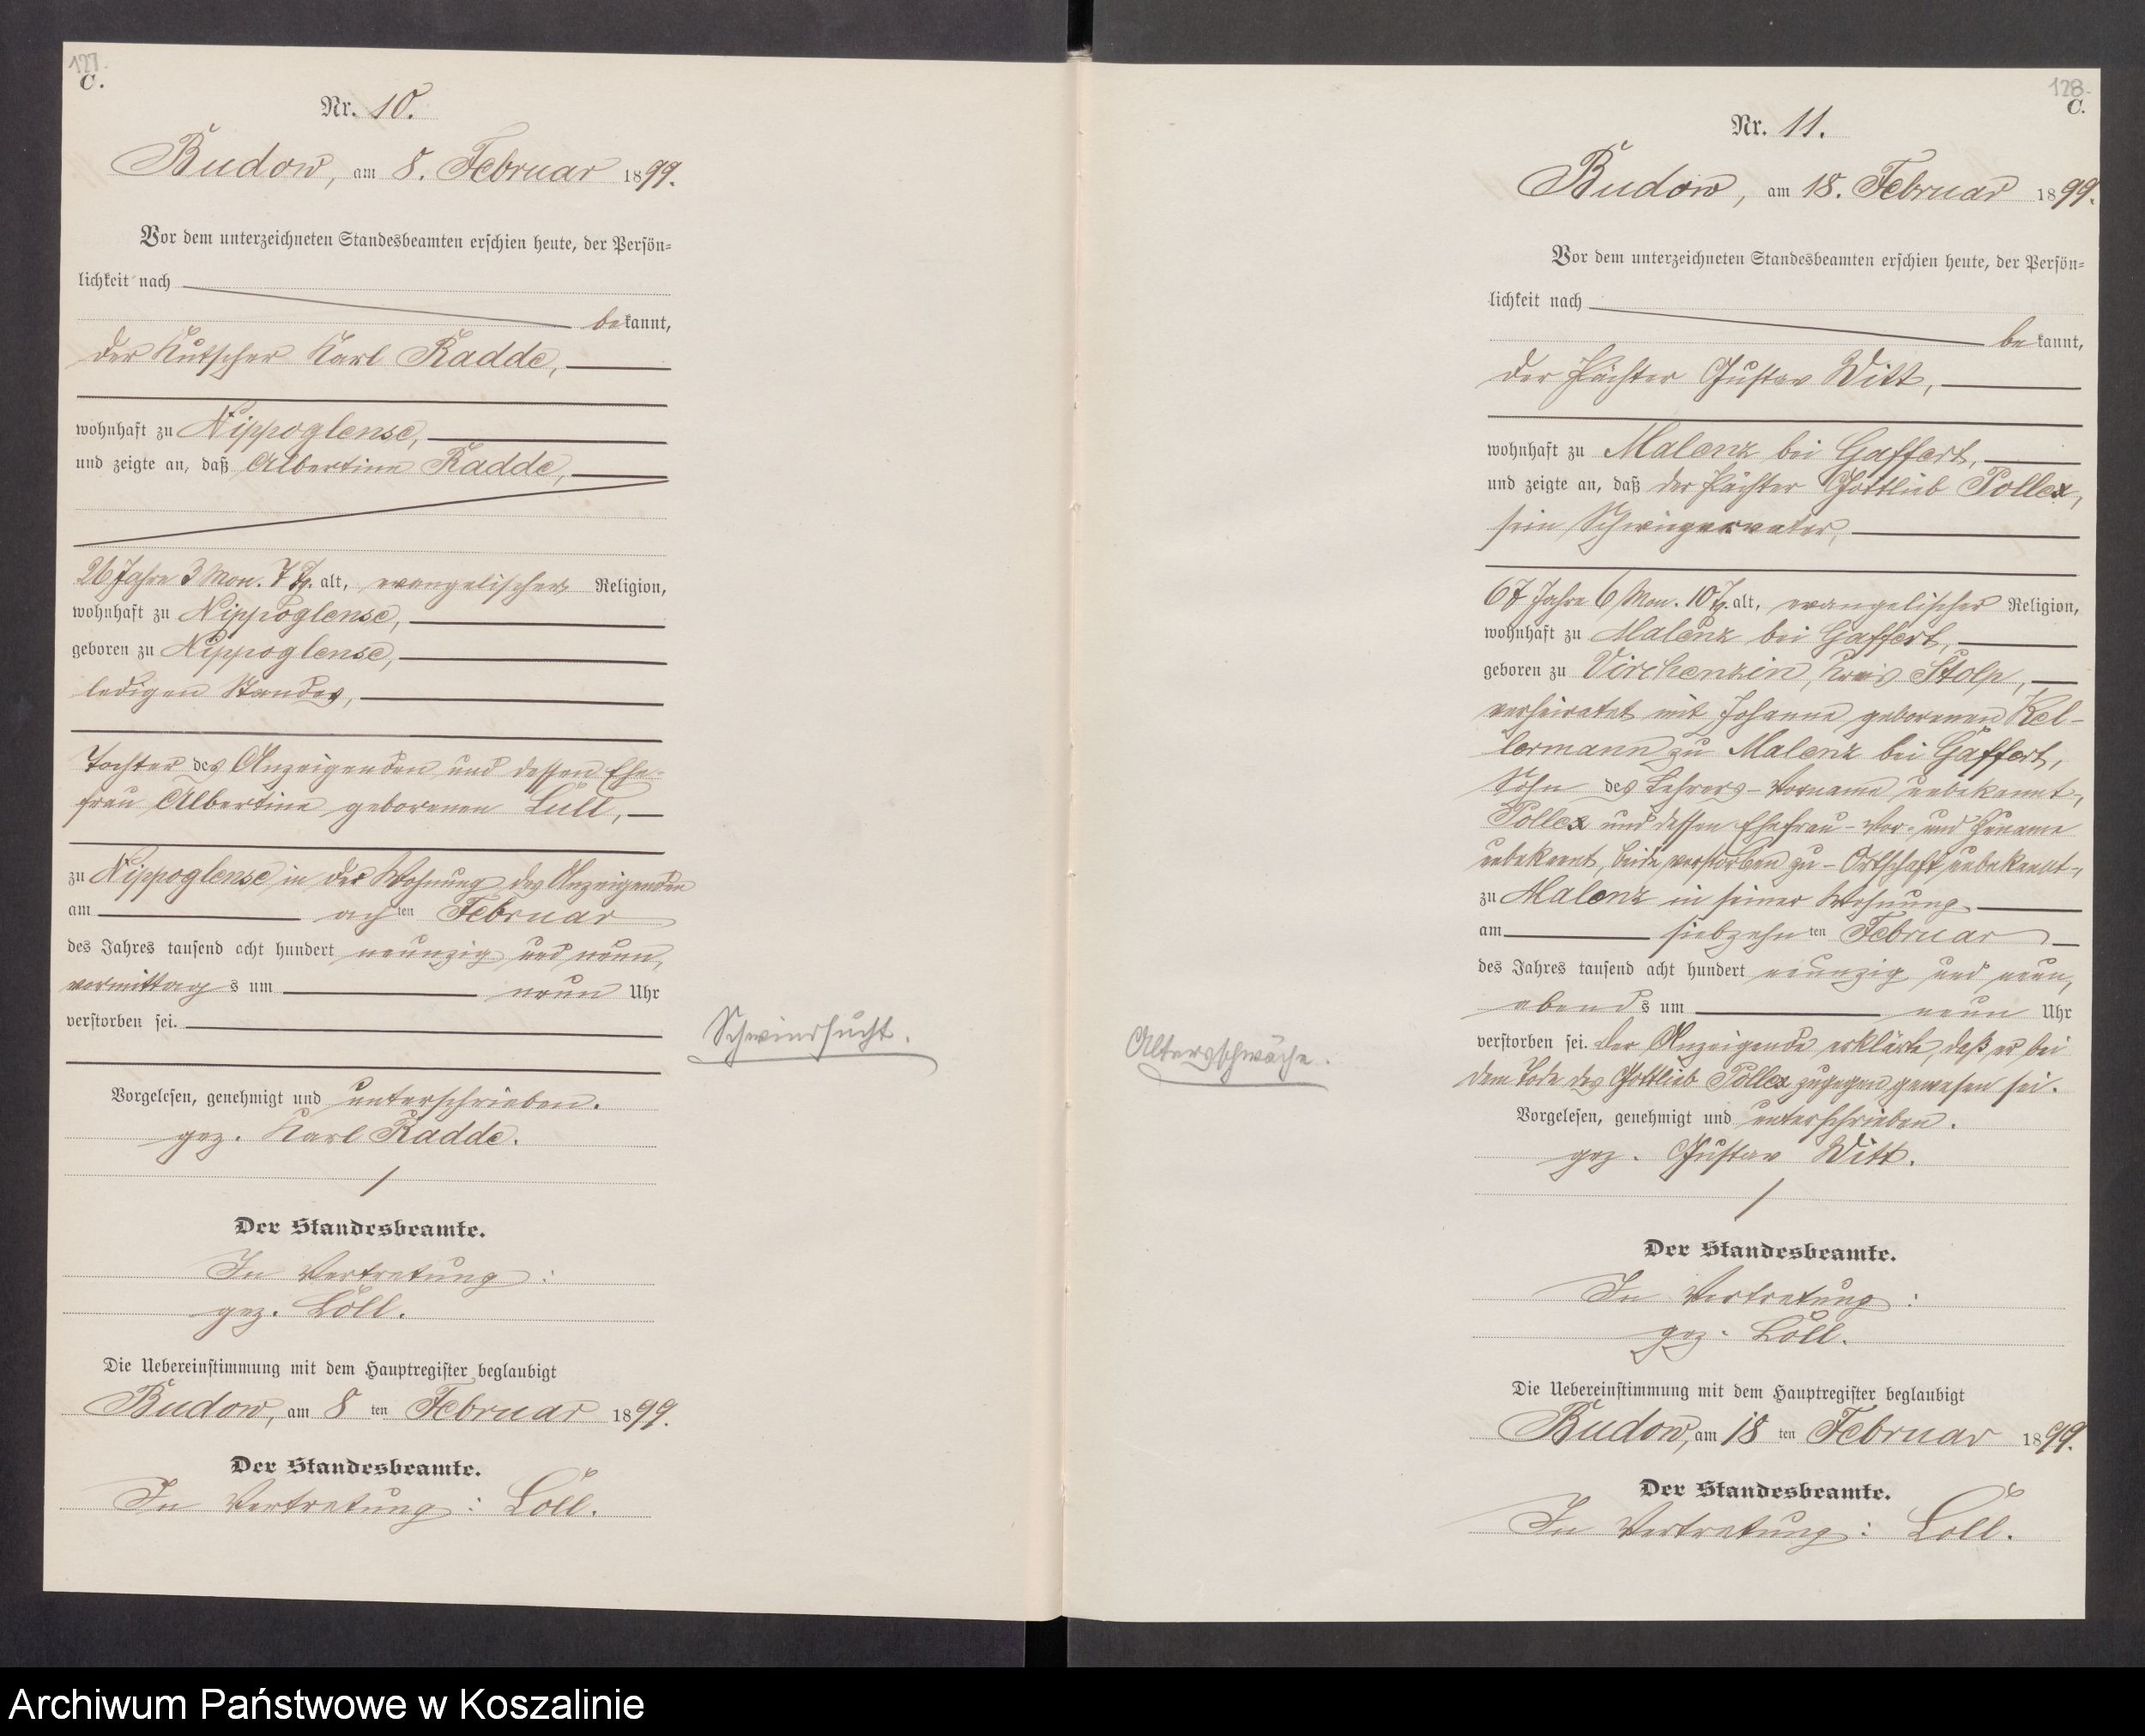 127.
C.
Nr. 10.
Budow, am 8. Februar 1899.
Vor dem unterzeichneten Standesbeamten erschien heute, der Persön=
lichkeit nach
bekannt,
der Kutscher Karl Radde,
wohnhaft zu Nippoglense,
und zeigte an, daß Albertine Radde,
26 Jahre 3 Mon. 7 Tg. alt, evangelischer Religion,
wohnhaft zu Nippoglense,
geboren zu Nippoglense,
ledigen Standes,
Tochter des Anzeigenden und dessen Ehe-
frau Albertine geborenen Lüll,
zu Nippoglense in der Wohnung des Anzeigenden
am achten Februar
des Jahres tausend acht hundert neunzig und neun,
vormittags um neun Uhr
verstorben sei.
Schwindsucht.
Vorgelesen, genehmigt und unterschrieben.
gez. Karl Radde.
Der Standesbeamte.
In Vertretung:
gez. Löll.
Die Uebereinstimmung mit dem Hauptregister beglaubigt
Budow, am 8ten Februar 1899.
Der Standesbeamte.
In Vertretung: Löll.
128.
C.
Nr. 11.
Budow, am 18. Februar 1899.
Vor dem unterzeichneten Standesbeamten erschien heute, der Persön=
lichkeit nach
bekannt,
der Pächter Gustav Witt,
wohnhaft zu Malenz bei Gaffert,
und zeigte an, daß der Pächter Gottlieb Pollex,
sein Schwiegervater,
67 Jahre 6 Mon. 10 Tg. alt, evangelischer Religion,
wohnhaft zu Malenz bei Gaffert,
geboren zu Virchenzin, Kreis Stolp,
verheiratet mit Johanne geborenen Kel-
lermann zu Malenz bei Gaffert,
Sohn des Lehrers - Vorname unbekannt -,
Pollex und dessen Ehefrau - Vor- und Zuname
unbekannt, beide verstorben zu - Ortschaft unbekannt -,
zu Malenz in seiner Wohnung
am siebzehnten Februar
des Jahres tausend acht hundert neunzig und neun,
abends um neun Uhr
verstorben sei. Der Anzeigende erklärte, daß er bei
dem Tode des Gottlieb Pollex zugegen gewesen sei.
Altersschwäche.
Vorgelesen, genehmigt und unterschrieben.
gez. Gustav Witt.
Der Standesbeamte.
In Vertretung:
gez. Löll.
Die Uebereinstimmung mit dem Hauptregister beglaubigt
Budow, am 18ten Februar 1899.
Der Standesbeamte.
In Vertretung: Löll.
Archiwum Państwowe w Koszalinie